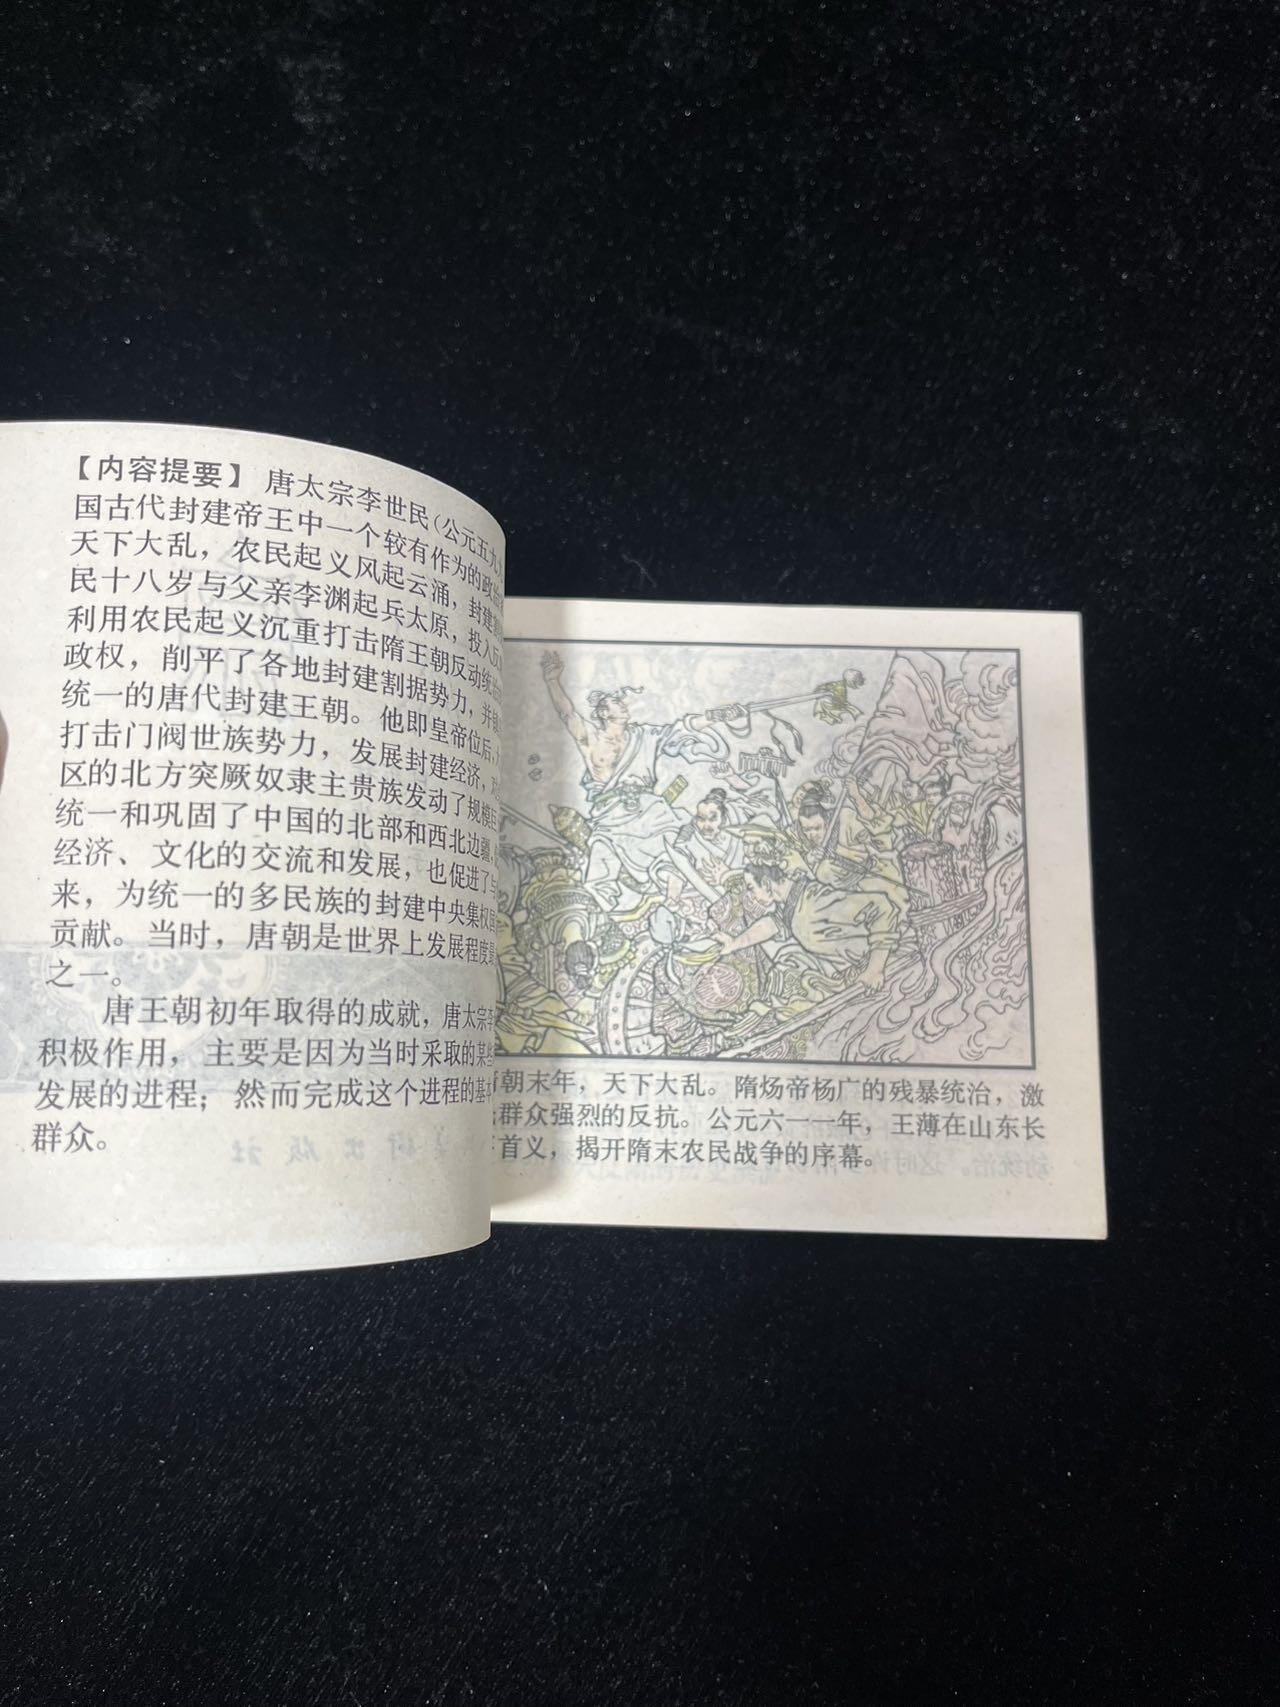 【内容提要】 唐太宗李世民(公元五九
国古代封建帝王中一个较有作为的政治
天下大乱，农民起义风起云涌，封建割
民十八岁与父亲李渊起兵太原，投入反
利用农民起义沉重打击隋王朝反动统治
政权，削平了各地封建割据势力，并
统一的唐代封建王朝。他即皇帝位后，
打击门阀世族势力，发展封建经济，对
区的北方突厥奴隶主贵族发动了规模
统一和巩固了中国的北部和西北边疆，
经济、文化的交流和发展，也促进了与
来，为统一的多民族的封建中央集权国
贡献。当时，唐朝是世界上发展程度最
之一。
唐王朝初年取得的成就，唐太宗李
积极作用，主要是因为当时采取的某些
发展的进程；然而完成这个进程的基本
群众。
朝末年，天下大乱。隋炀帝杨广的残暴统治，激
群众强烈的反抗。公元六一一年，王薄在山东长
首义，揭开隋末农民战争的序幕。